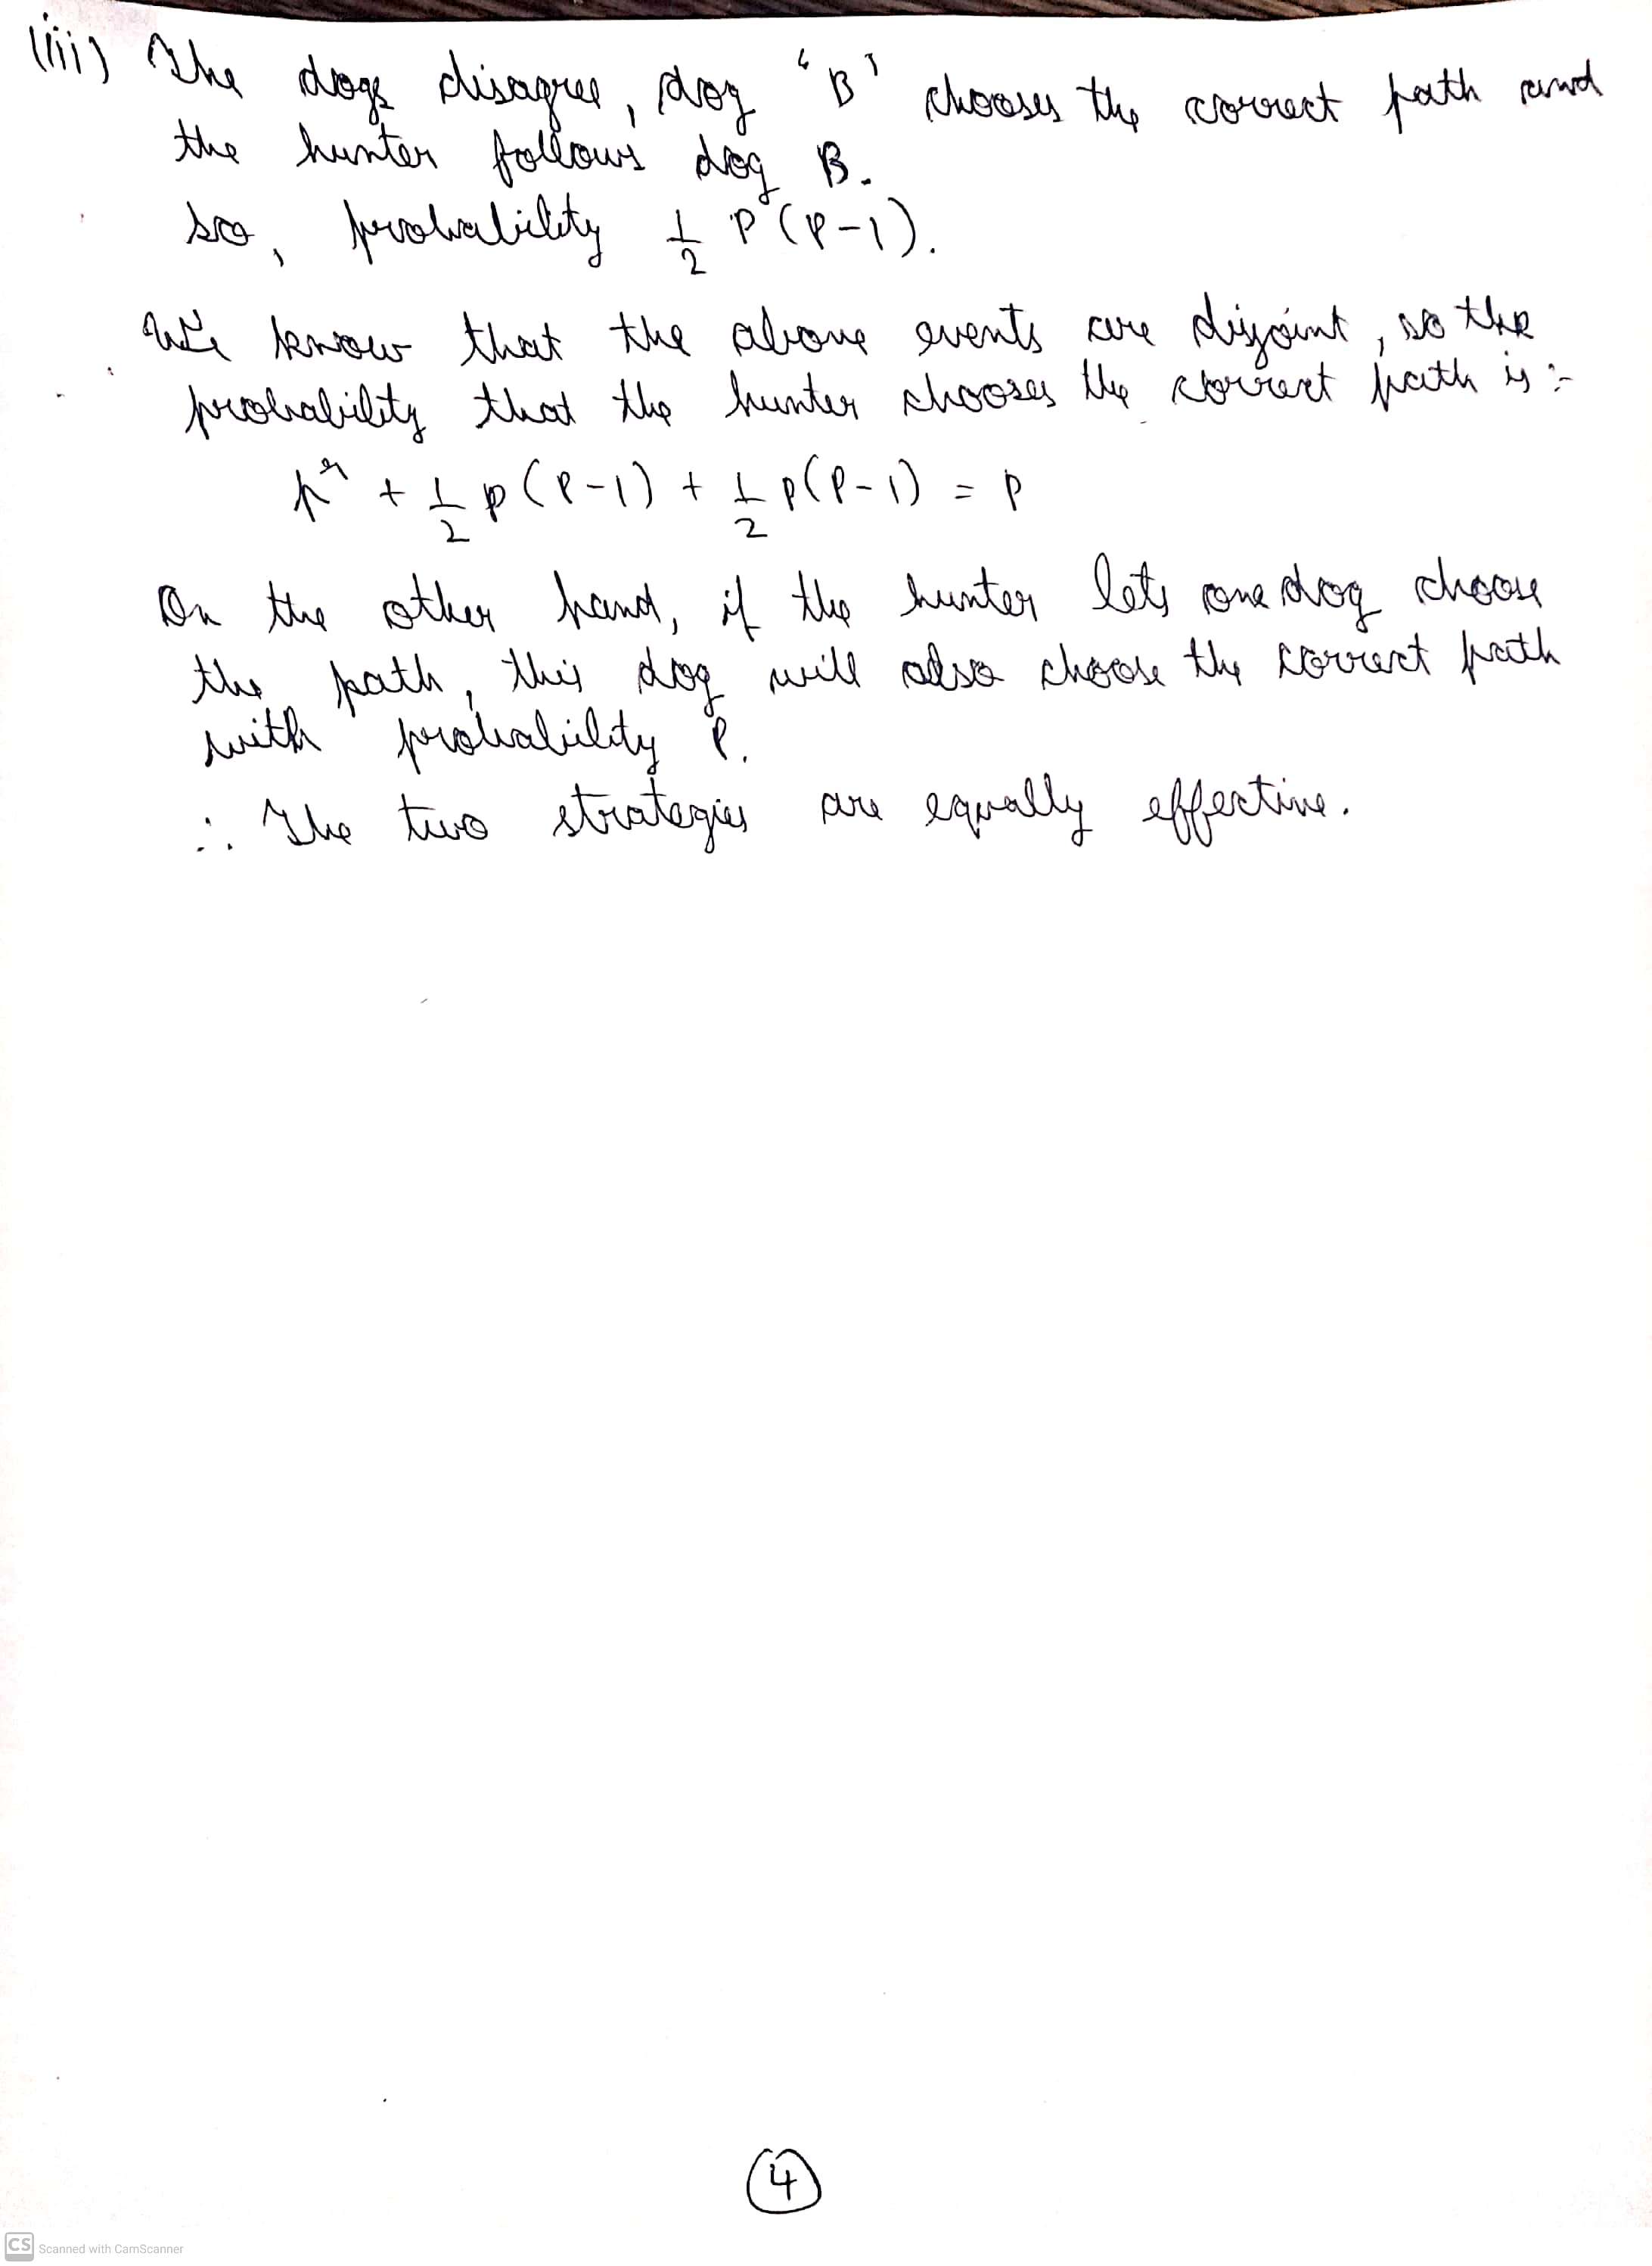 (iii) The dogs disagree, dog "B" chooses the correct path and
the hunter follows dog B.
so, probability 1/2 P(P-1).
We know that the above events are disjoint, so the
probability that the hunter chooses the correct path is :-
p² + 1/2 p(P-1) + 1/2 p(P-1) = p
On the other hand, if the hunter lets one dog choose
the path, this dog will also choose the correct path
with probability P.
∴ The two strategies are equally effective.
4
CS Scanned with CamScanner